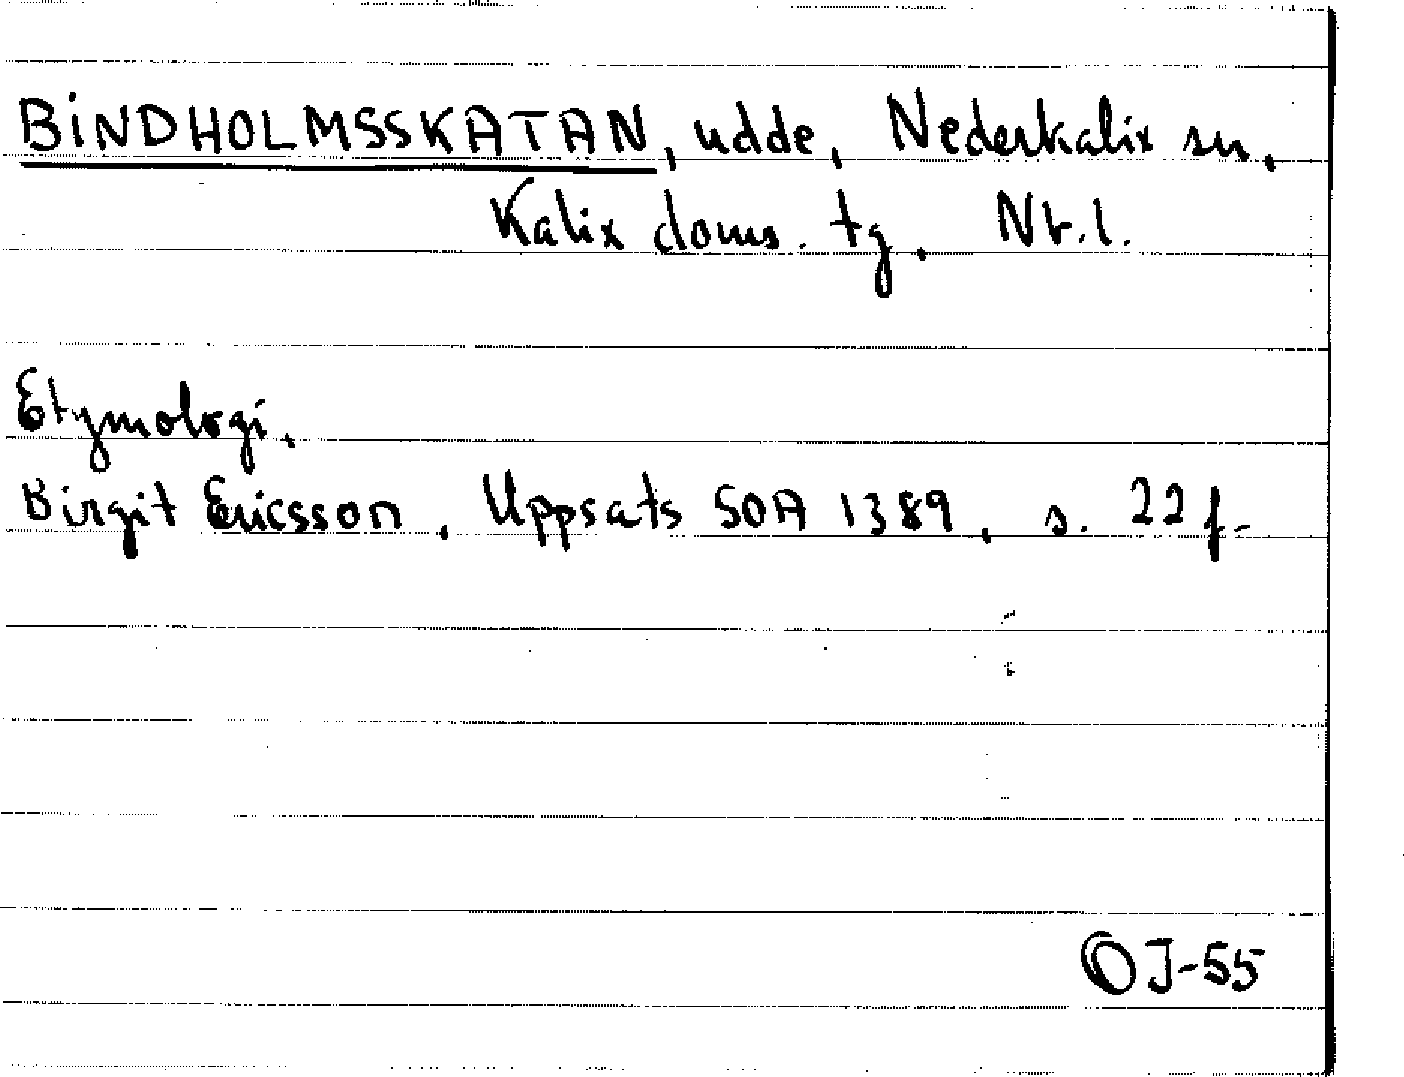 BINDHOLMSSKATAN, udde, Nederkalix sn,
Kalix doms. tg. Nb.l.
Etymologi.
Birgit Ericsson, Uppsats SOA 1389, s. 22 f.
OJ-55